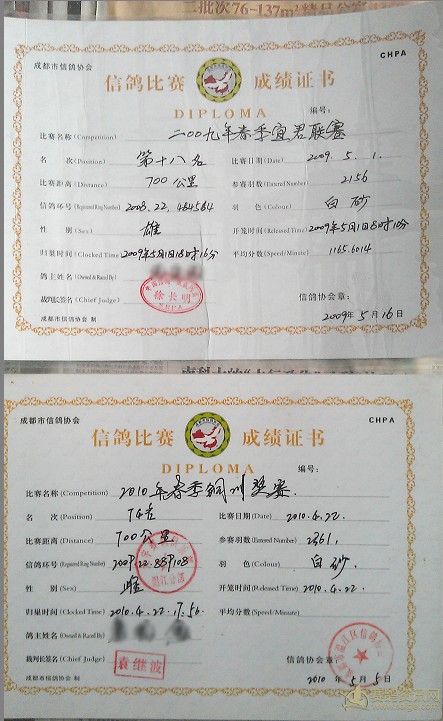 二批次76~137m²
成都市信鸽协会 CHPA
信鸽比赛 成绩证书
DIPLOMA 编号：
比赛名称(Competition) 二00九年春季宜君联赛
名 次(Position) 第十八名 比赛日期(Date) 2009.5.1.
比赛距离(Distance) 700公里 参赛羽数(Entered Number) 2156
信鸽环号(Registered Ring Number) 2008.22.484584 羽 色(Colour) 白砂
性 别(Sex) 雄 开笼时间(Released Time) 2009年5月1日
归巢时间(Clocked Time) 2009年5月1日18时16分 平均分数(Speed/Minute) 1165.6014
鸽主姓名(Owned & Raced By)
裁判长签名(Chief Judge) 徐长明 信鸽协会章：
成都市信鸽协会 制 2009年5月16日
成都市信鸽协会 CHPA
信鸽比赛 成绩证书
DIPLOMA 编号：
比赛名称(Competition) 2010年春季铜川奖赛.
名 次(Position) 74名 比赛日期(Date) 2010.4.22.
比赛距离(Distance) 700公里 参赛羽数(Entered Number) 2361,
信鸽环号(Registered Ring Number) 2007.22.887108 羽 色(Colour) 白砂
性 别(Sex) 雌 开笼时间(Released Time) 2010.4.22.
归巢时间(Clocked Time) 2010.4.22.17:56. 平均分数(Speed/Minute)
鸽主姓名(Owned & Raced By)
裁判长签名(Chief Judge) 袁继波 信鸽协会章：
成都市信鸽协会 制 2010年5月5日